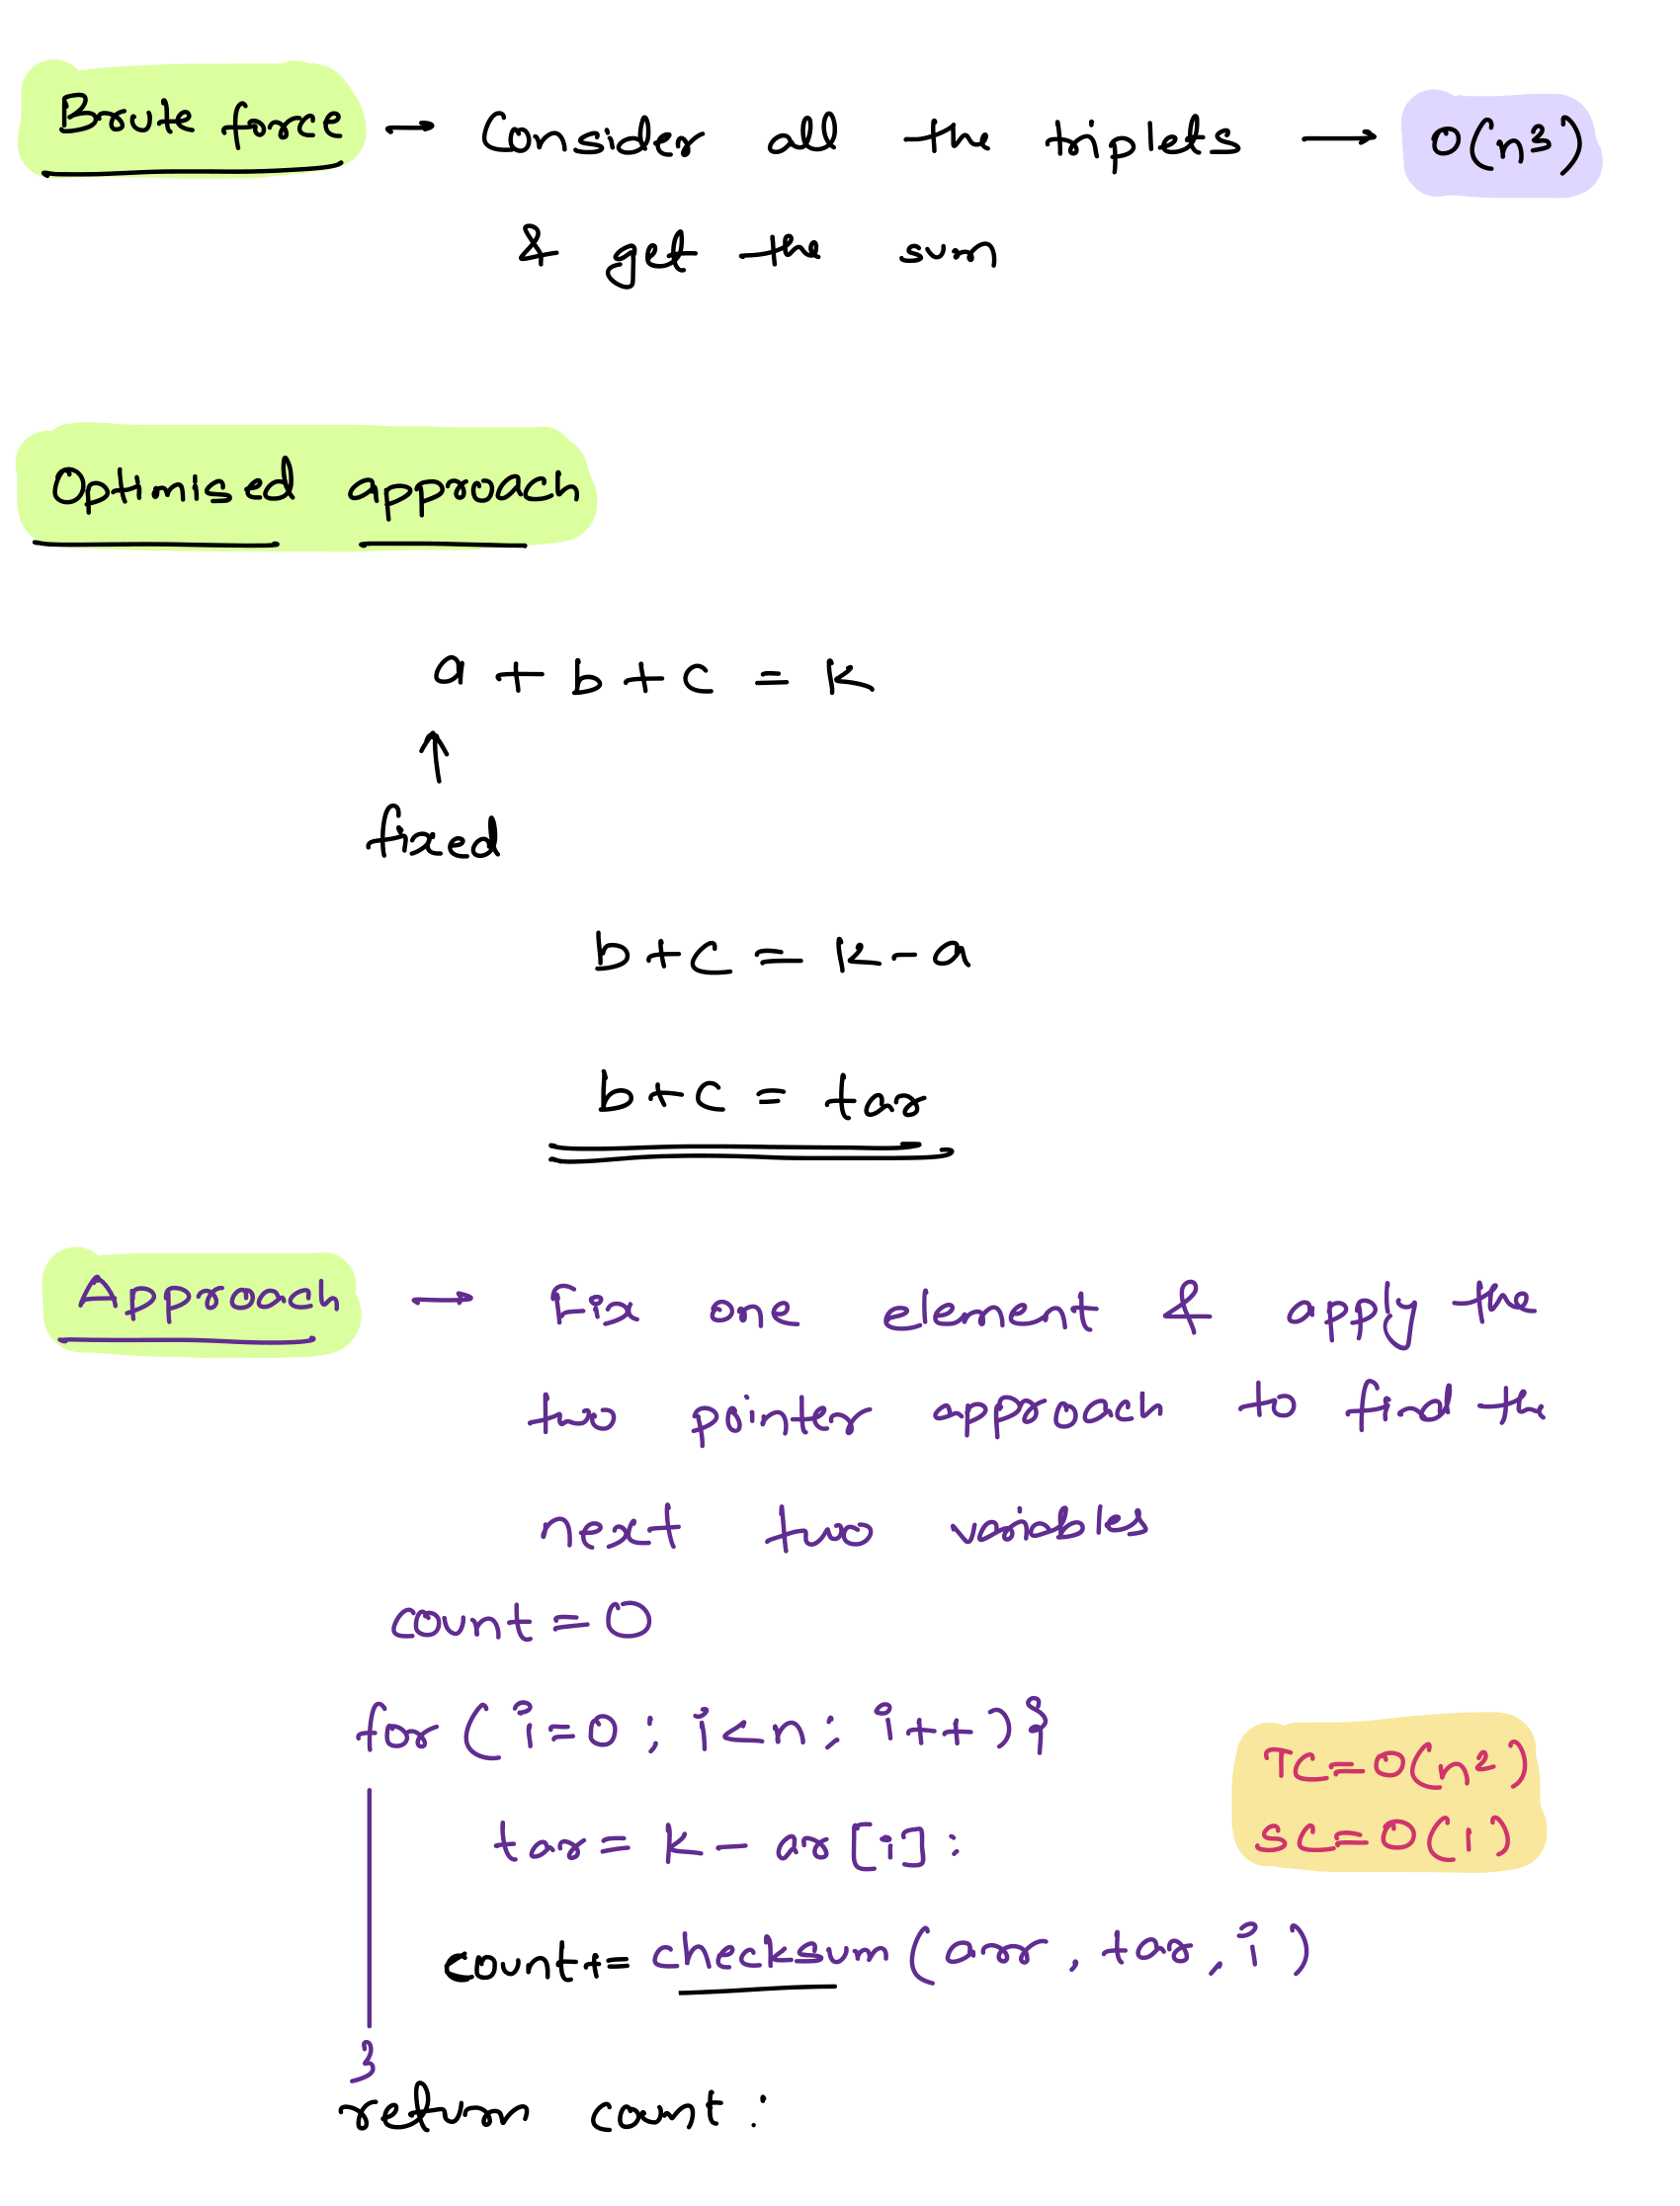 Brute force → Consider all the triplets → O(n³)
& get the sum
Optimised approach
a + b + c = k
↑
fixed
b + c = k - a
b + c = tar
Approach → Fix one element & apply the
two pointer approach to find the
next two variables
count = 0
for ( i=0 ; i<n ; i++ ){
TC = O(n²)
tar = k - ar[i];
SC = O(1)
count+= checksum (arr, tar, i )
}
return count ;